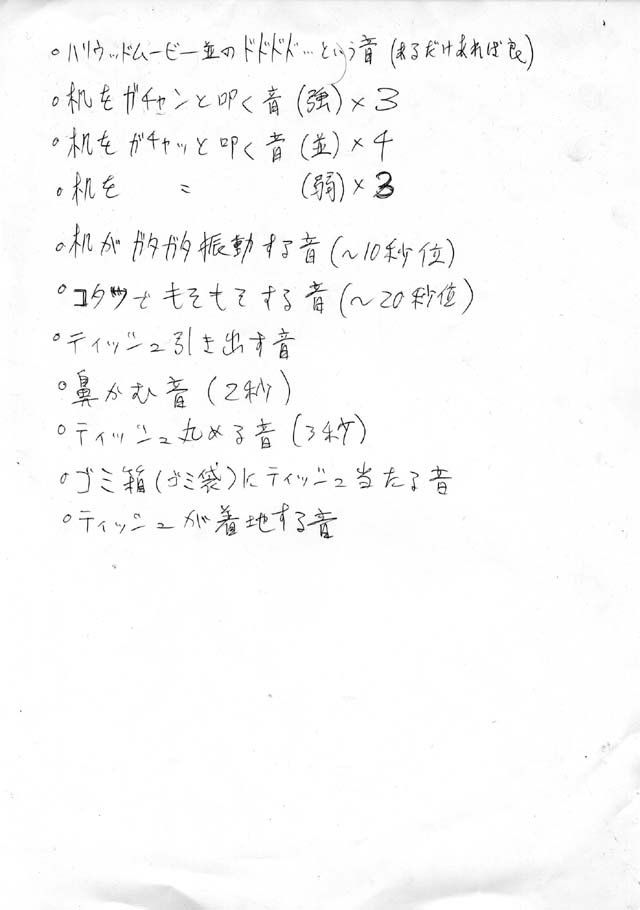 ○ハリウッドムービー並のドドドド…という音(あるだけあれば良)
○机をガチャンと叩く音(強)×3
○机をガチャッと叩く音(並)×4
○机を 〃 (弱)×3
○机がガタガタ振動する音(〜10秒位)
○コタツでもそもそする音(〜20秒位)
○ティッシュ引き出す音
○鼻かむ音(2秒)
○ティッシュ丸める音(3秒)
○ゴミ箱(ゴミ袋)にティッシュ当たる音
○ティッシュが着地する音